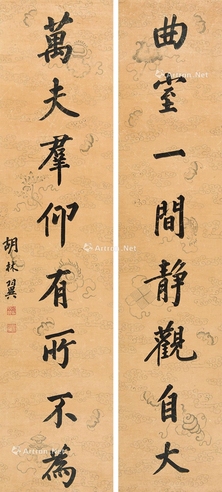 曲室一間靜觀自大
萬夫羣仰有所不為
胡林翼
Artron.Net